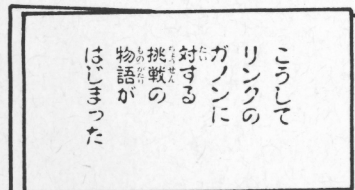 こうして
リンクの
ガノンに
対する
挑戦の
物語が
はじまった